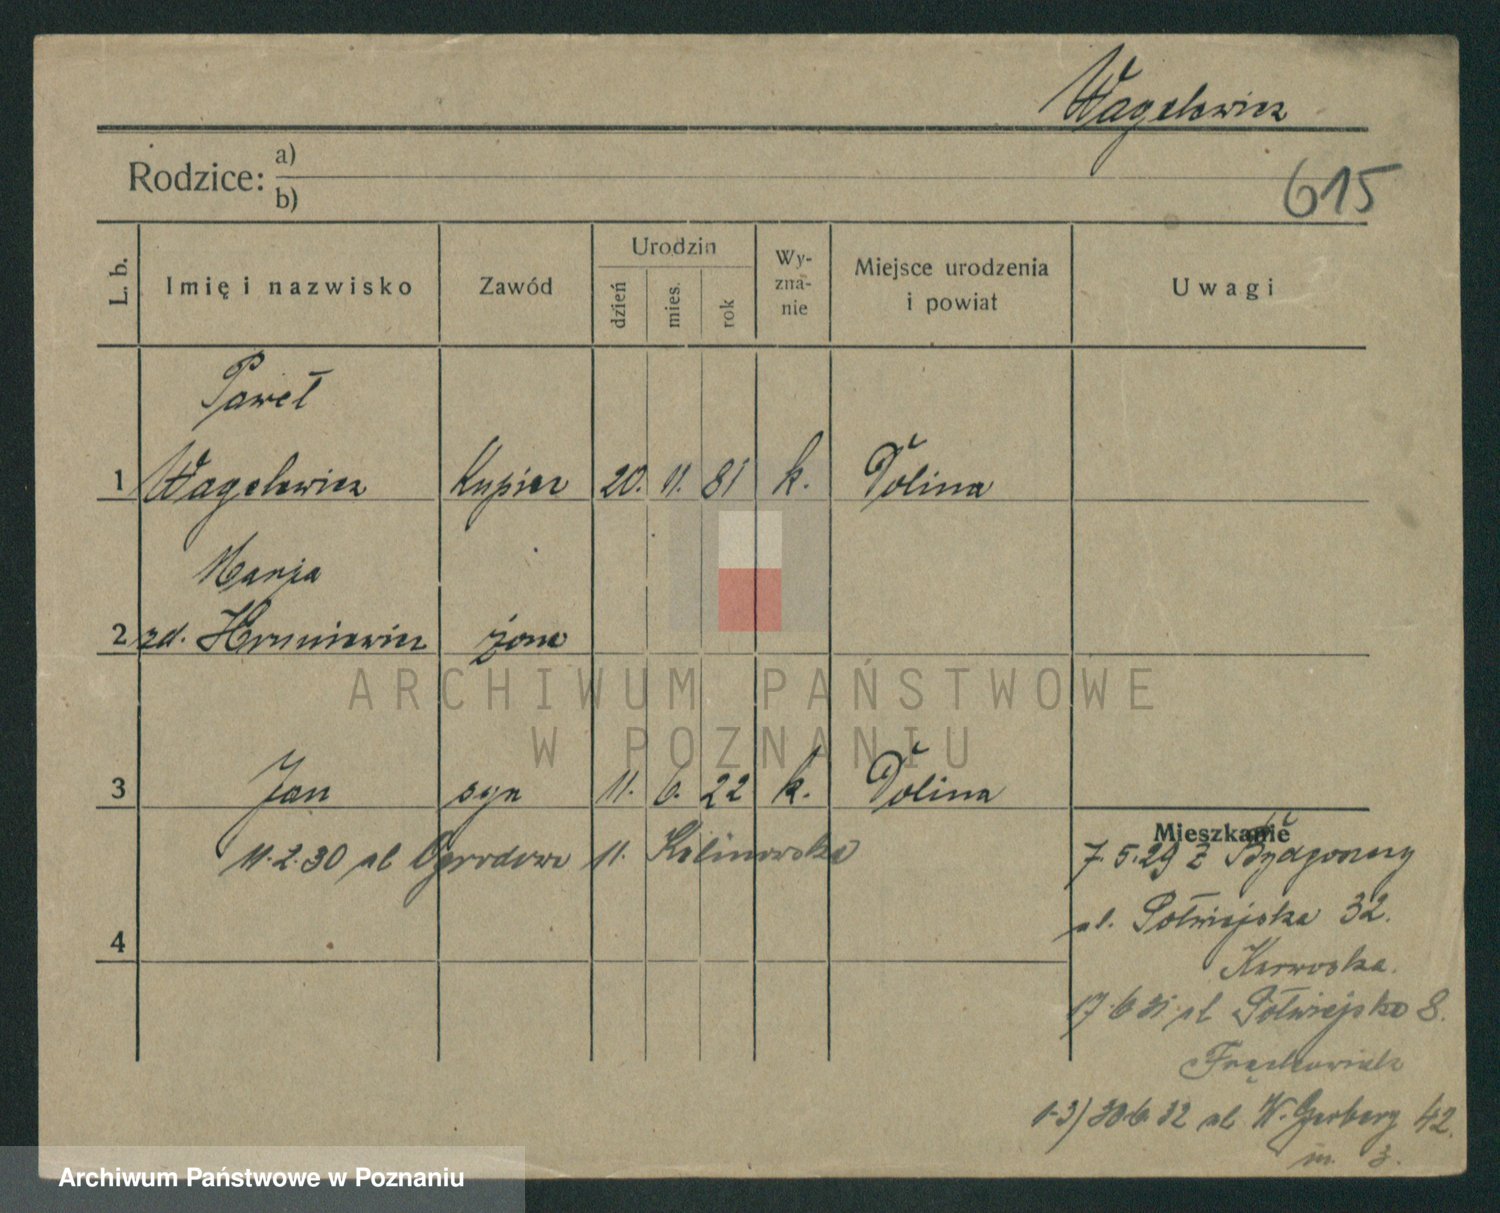 Wagelewicz
Rodzice: a)
b)
615
L. b. Imię i nazwisko Zawód Urodzin dzień mies. rok Wy-zna-nie Miejsce urodzenia i powiat Uwagi
Paweł
1 Wagelewicz Kupiec 20. 11. 81 k. Dolina
Marja
2 zd. Hruniewicz żona
ARCHIWUM PAŃSTWOWE
W POZNANIU
3 Jan syn 11. 6. 22 k. Dolina
Mieszkanie
11.2.30 ul Ogrodowa 11. Kalinowska
7.5.29 z Bydgoszczy
ul. Półwiejska 32.
4
Karwoska.
17.6.31 ul Półwiejska 8.
Frąckowiak
1-3) 30.6.32 ul W. Garbary 42.
m. 3.
Archiwum Państwowe w Poznaniu